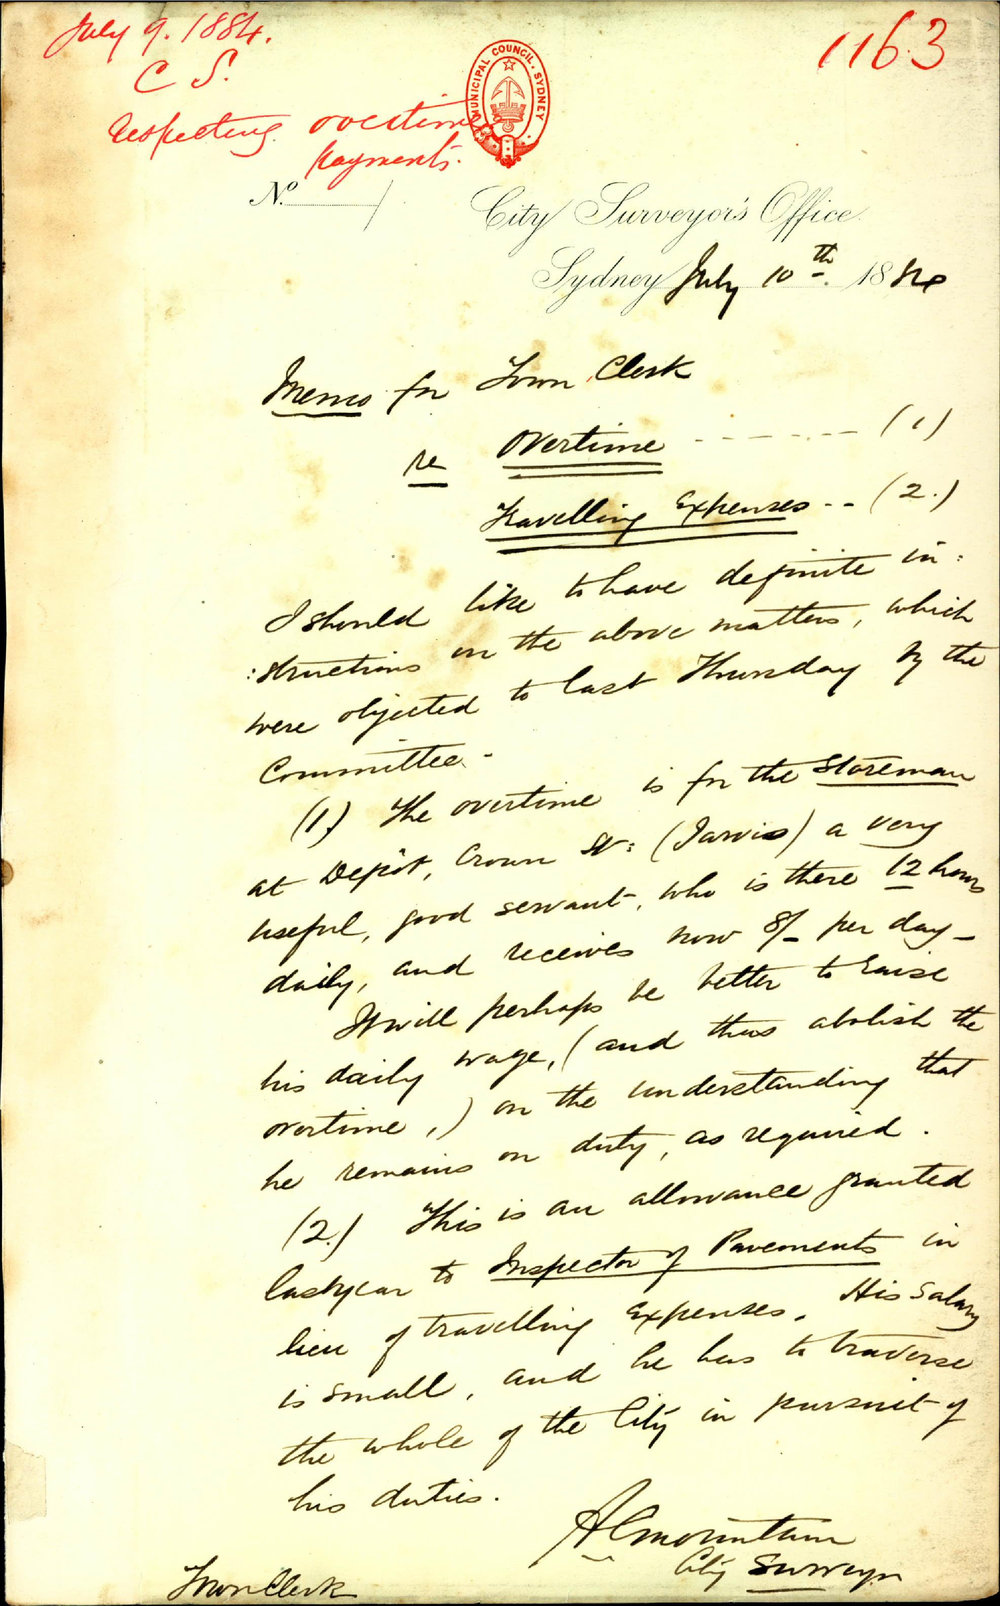 July 9. 1884.
C S.
respecting overtime
payments.
1163
MUNICIPAL COUNCIL. SYDNEY
No. /
City Surveyor's Office.
Sydney July 10th 1884
Memo for Town Clerk
re Overtime ------- (1)
Travelling Expenses -- (2.)
I should like to have definite in:
:structions on the above matters, which
were objected to last Thursday by the
Committee.-
(1) The overtime is for the Storeman
at Depôt, Crown St: (Jarvis) a very
useful, good servant, who is there 12 hours
daily, and receives now 8/- per day -
It will perhaps be better to raise
his daily wage, (and thus abolish the
overtime,) on the understanding that
he remains on duty, as required.
(2.) This is an allowance granted
last year to Inspector of Pavements in
lieu of travelling Expenses. His salary
is small, and he has to traverse
the whole of the City in pursuit of
his duties.
A C Mountain
City Surveyor
Town Clerk